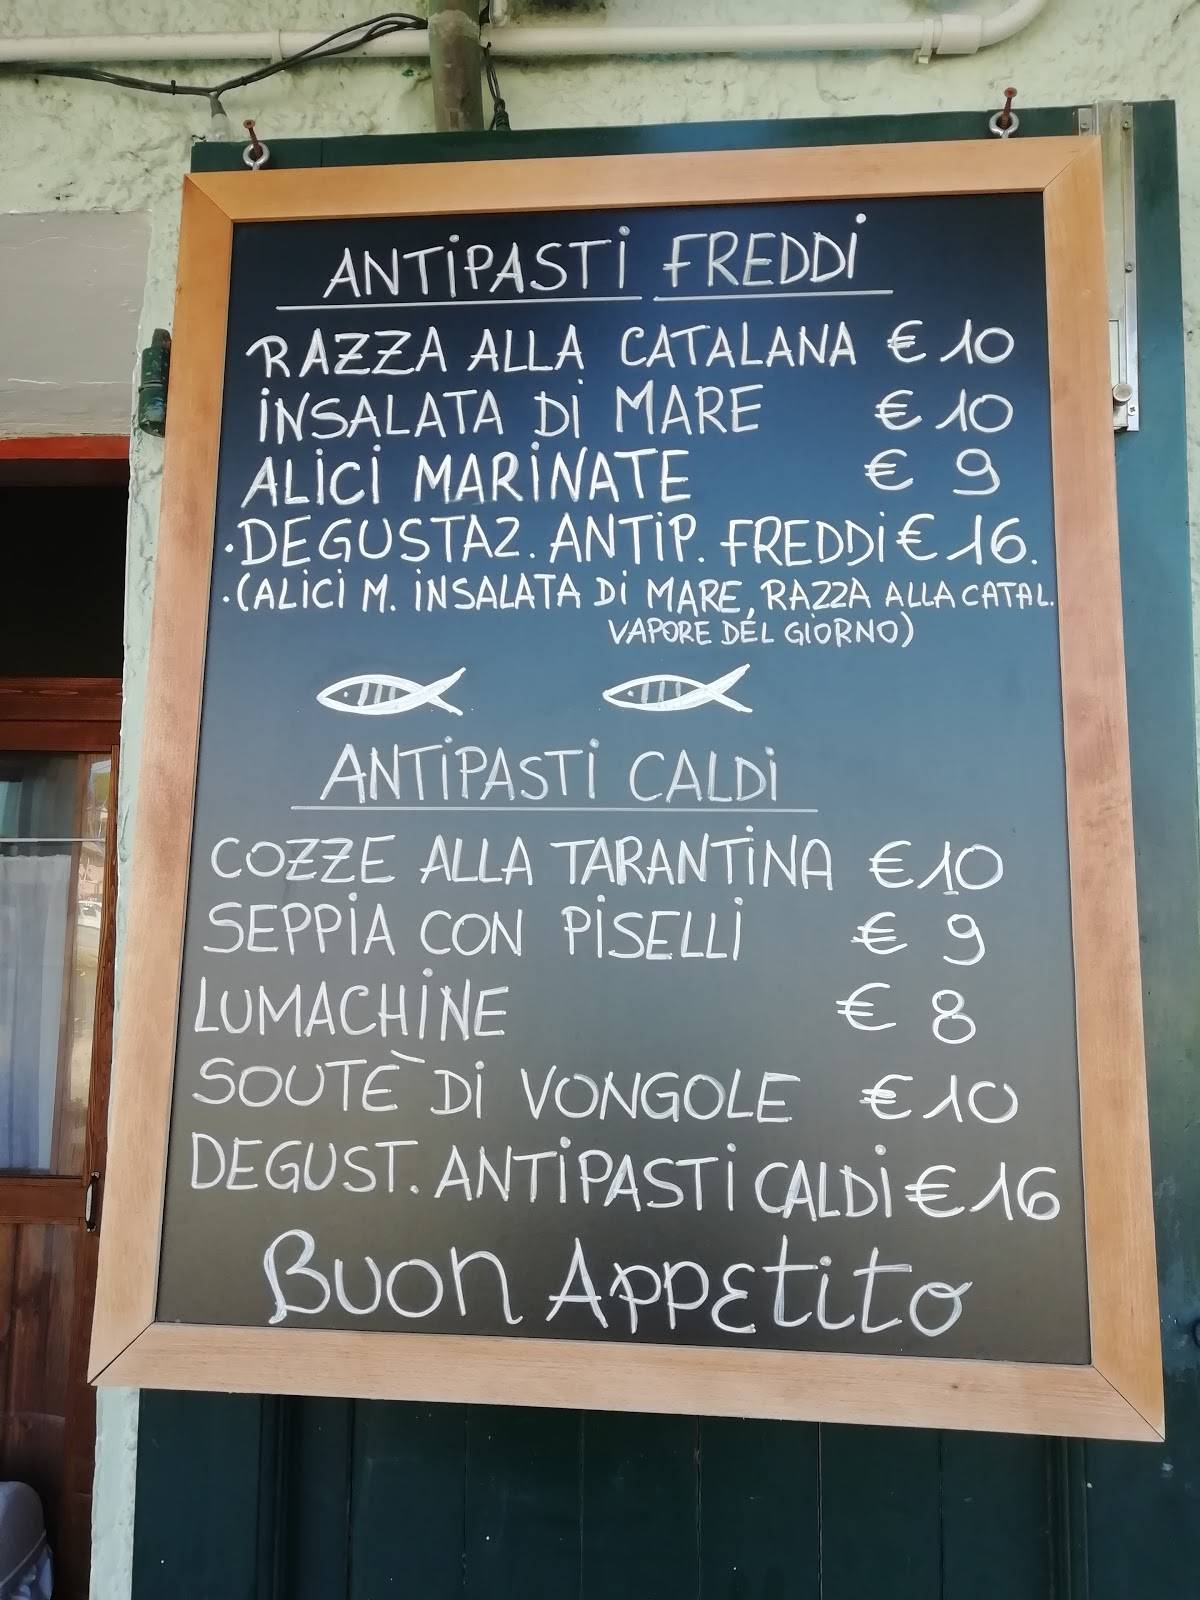 ANTIPASTI FREDDI
RAZZA ALLA CATALANA € 10
INSALATA DI MARE € 10
ALICI MARINATE € 9
·DEGUSTAZ. ANTIP. FREDDI € 16.
·(ALICI M. INSALATA DI MARE, RAZZA ALLA CATAL.
VAPORE DEL GIORNO)
ANTIPASTI CALDI
COZZE ALLA TARANTINA € 10
SEPPIA CON PISELLI € 9
LUMACHINE € 8
SOUTÈ DI VONGOLE € 10
DEGUST. ANTIPASTI CALDI € 16
BUON APPETITO